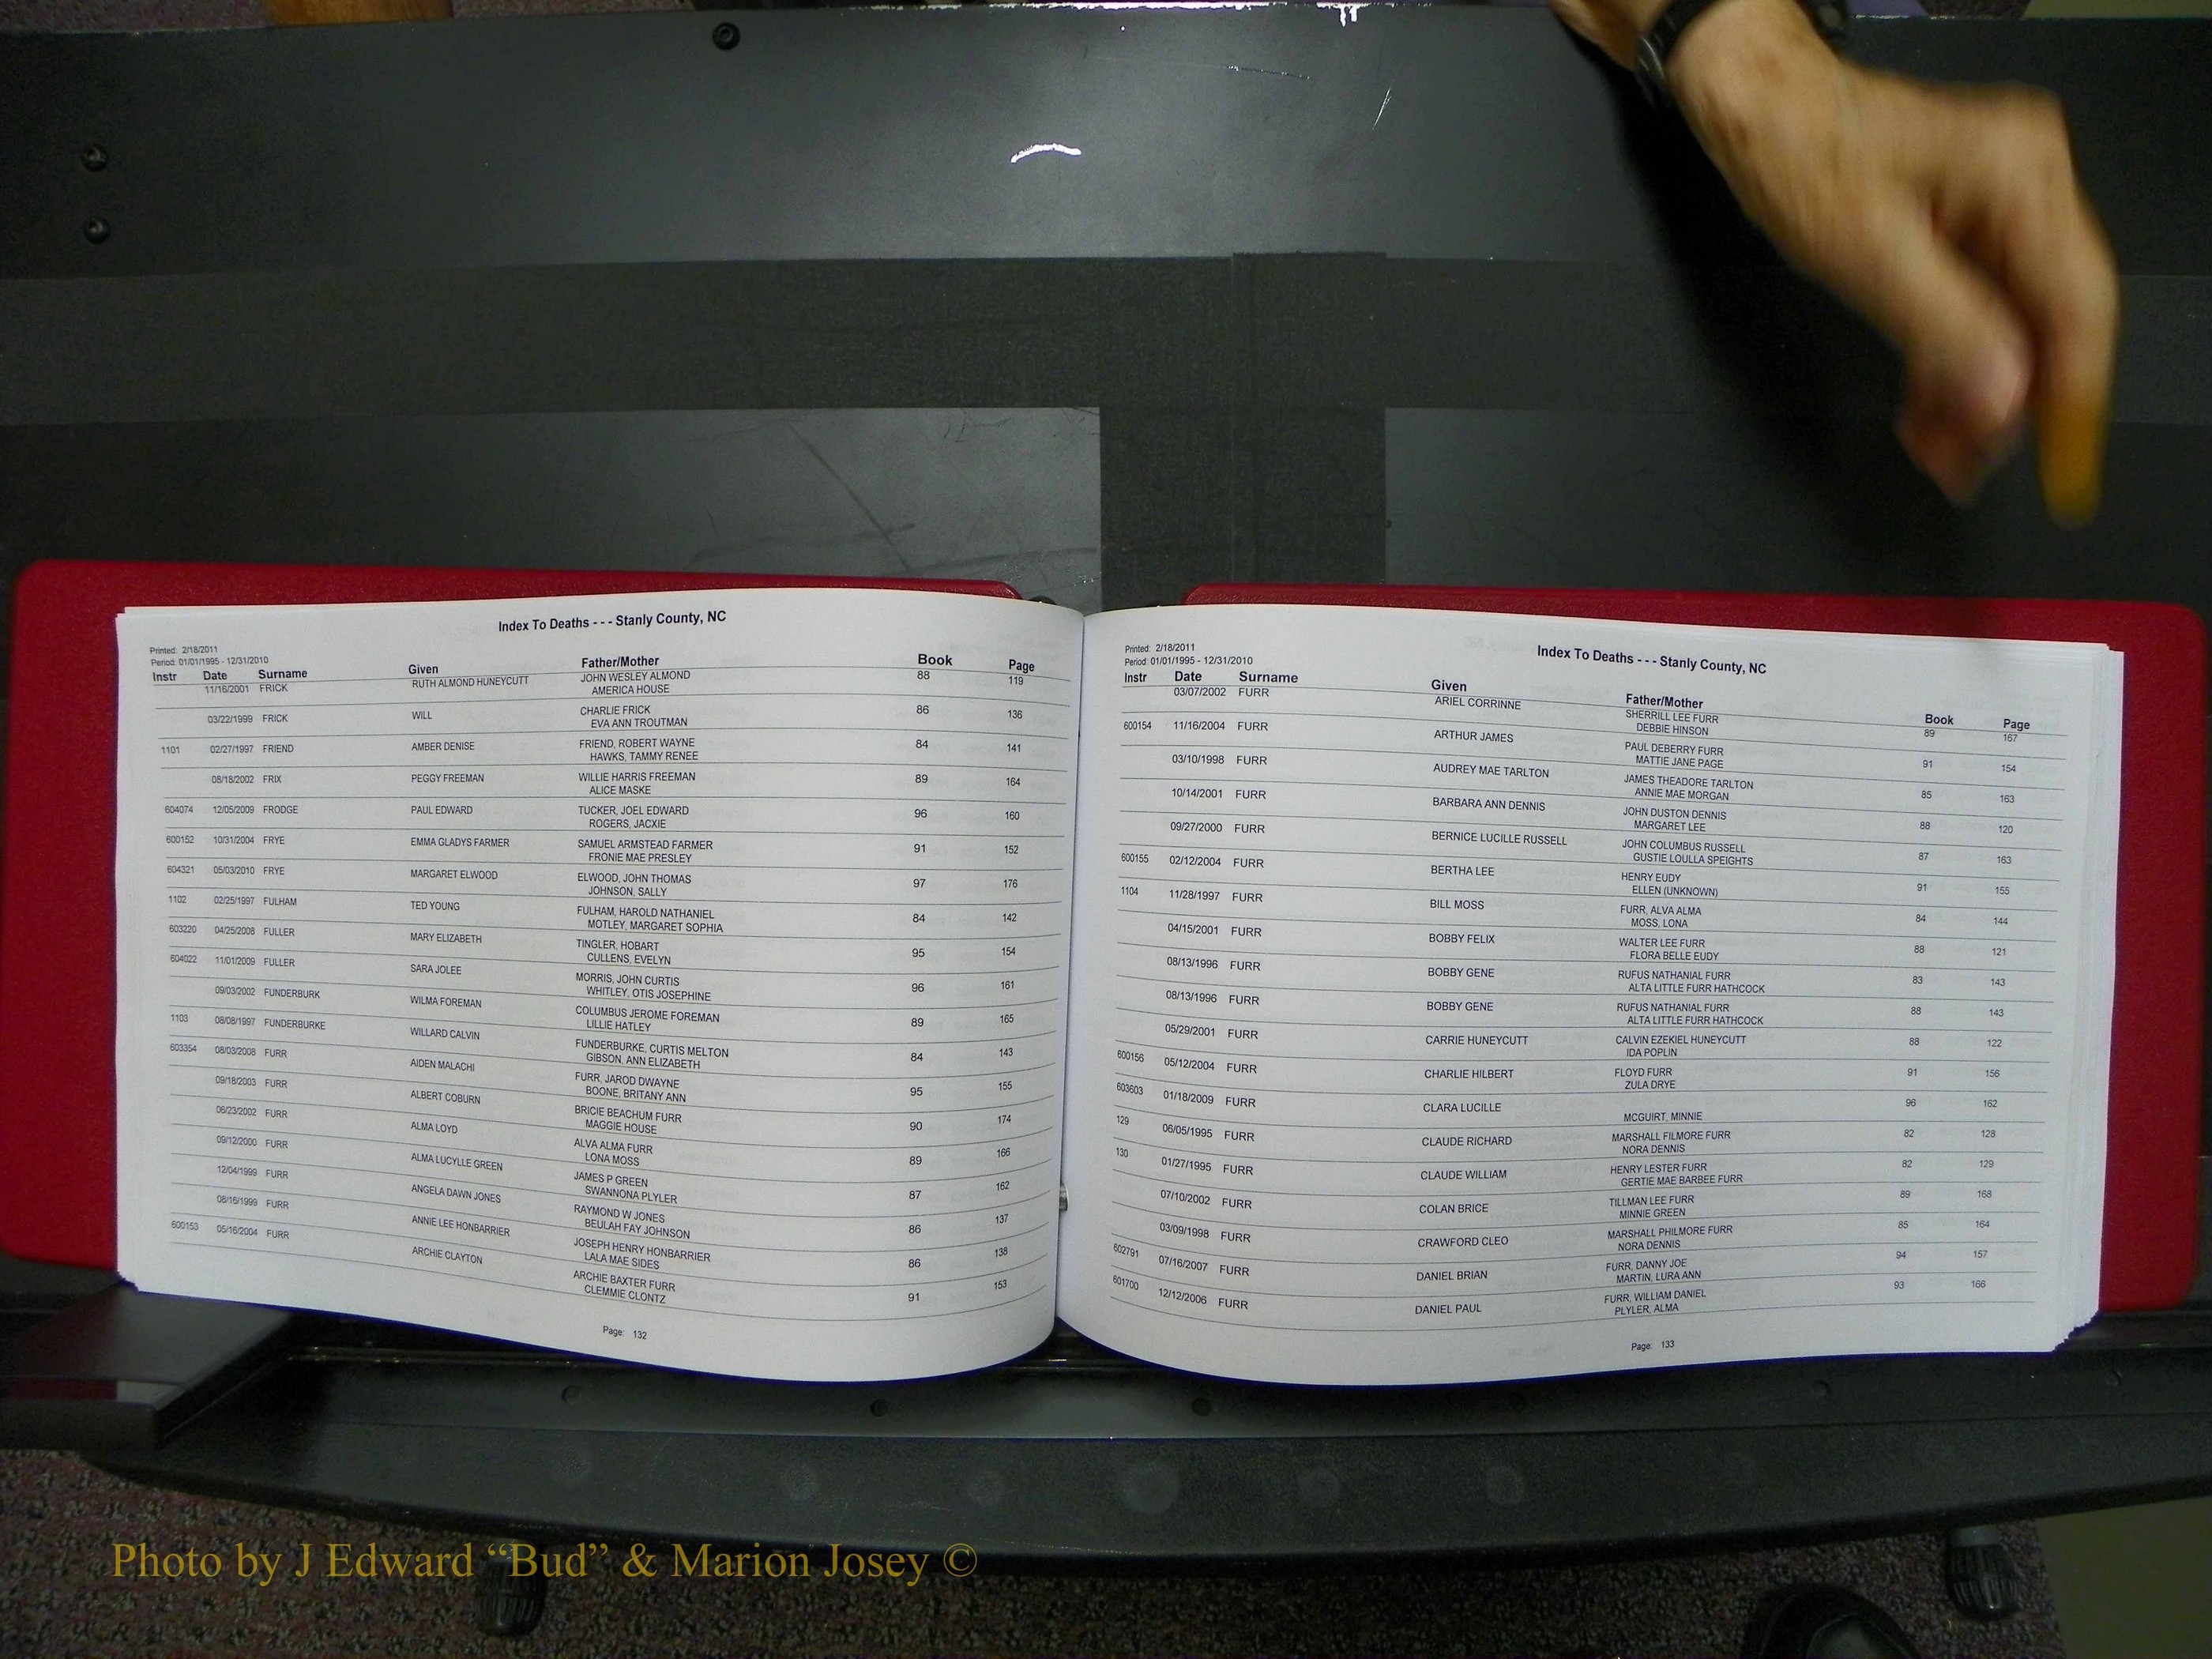 Index To Deaths - - - Stanly County, NC
Printed: 2/18/2011
Period: 01/01/1995 - 12/31/2010
Instr Date Surname Given Father/Mother Book Page
11/16/2001 FRICK RUTH ALMOND HUNEYCUTT JOHN WESLEY ALMOND 88 119
AMERICA HOUSE
03/22/1999 FRICK WILL CHARLIE FRICK 86 136
EVA ANN TROUTMAN
1101 02/27/1997 FRIEND AMBER DENISE FRIEND, ROBERT WAYNE 84 141
HAWKS, TAMMY RENEE
08/18/2002 FRIX PEGGY FREEMAN WILLIE HARRIS FREEMAN 89 164
ALICE MASKE
604074 12/05/2009 FRODGE PAUL EDWARD TUCKER, JOEL EDWARD 96 160
ROGERS, JACXIE
600152 10/31/2004 FRYE EMMA GLADYS FARMER SAMUEL ARMSTEAD FARMER 91 152
FRONIE MAE PRESLEY
604321 05/03/2010 FRYE MARGARET ELWOOD ELWOOD, JOHN THOMAS 97 176
JOHNSON, SALLY
1102 02/25/1997 FULHAM TED YOUNG FULHAM, HAROLD NATHANIEL 84 142
MOTLEY, MARGARET SOPHIA
603220 04/25/2008 FULLER MARY ELIZABETH TINGLER, HOBART 95 154
CULLENS, EVELYN
604022 11/01/2009 FULLER SARA JOLEE MORRIS, JOHN CURTIS 96 161
WHITLEY, OTIS JOSEPHINE
09/03/2002 FUNDERBURK WILMA FOREMAN COLUMBUS JEROME FOREMAN 89 165
LILLIE HATLEY
1103 08/08/1997 FUNDERBURKE WILLARD CALVIN FUNDERBURKE, CURTIS MELTON 84 143
GIBSON, ANN ELIZABETH
603354 08/03/2008 FURR AIDEN MALACHI FURR, JAROD DWAYNE 95 155
BOONE, BRITANY ANN
09/18/2003 FURR ALBERT COBURN BRICIE BEACHUM FURR 90 174
MAGGIE HOUSE
06/23/2002 FURR ALMA LOYD ALVA ALMA FURR 89 166
LONA MOSS
09/12/2000 FURR ALMA LUCYLLE GREEN JAMES P GREEN 87 162
SWANNONA PLYLER
12/04/1999 FURR ANGELA DAWN JONES RAYMOND W JONES 86 137
BEULAH FAY JOHNSON
08/16/1999 FURR ANNIE LEE HONBARRIER JOSEPH HENRY HONBARRIER 86 138
LALA MAE SIDES
600153 05/16/2004 FURR ARCHIE CLAYTON ARCHIE BAXTER FURR 91 153
CLEMMIE CLONTZ
Page: 132
Index To Deaths - - - Stanly County, NC
Printed: 2/18/2011
Period: 01/01/1995 - 12/31/2010
Instr Date Surname Given Father/Mother Book Page
03/07/2002 FURR ARIEL CORRINNE SHERRILL LEE FURR 89 167
DEBBIE HINSON
600154 11/16/2004 FURR ARTHUR JAMES PAUL DEBERRY FURR 91 154
MATTIE JANE PAGE
03/10/1998 FURR AUDREY MAE TARLTON JAMES THEADORE TARLTON 85 163
ANNIE MAE MORGAN
10/14/2001 FURR BARBARA ANN DENNIS JOHN DUSTON DENNIS 88 120
MARGARET LEE
09/27/2000 FURR BERNICE LUCILLE RUSSELL JOHN COLUMBUS RUSSELL 87 163
GUSTIE LOULLA SPEIGHTS
600155 02/12/2004 FURR BERTHA LEE HENRY EUDY 91 155
ELLEN (UNKNOWN)
1104 11/28/1997 FURR BILL MOSS FURR, ALVA ALMA 84 144
MOSS, LONA
04/15/2001 FURR BOBBY FELIX WALTER LEE FURR 88 121
FLORA BELLE EUDY
08/13/1996 FURR BOBBY GENE RUFUS NATHANIAL FURR 83 143
ALTA LITTLE FURR HATHCOCK
08/13/1996 FURR BOBBY GENE RUFUS NATHANIAL FURR 88 143
ALTA LITTLE FURR HATHCOCK
05/29/2001 FURR CARRIE HUNEYCUTT CALVIN EZEKIEL HUNEYCUTT 88 122
IDA POPLIN
600156 05/12/2004 FURR CHARLIE HILBERT FLOYD FURR 91 156
ZULA DRYE
603603 01/18/2009 FURR CLARA LUCILLE 96 162
MCGUIRT, MINNIE
129 06/05/1995 FURR CLAUDE RICHARD MARSHALL FILMORE FURR 82 128
NORA DENNIS
130 01/27/1995 FURR CLAUDE WILLIAM HENRY LESTER FURR 82 129
GERTIE MAE BARBEE FURR
07/10/2002 FURR COLAN BRICE TILLMAN LEE FURR 89 168
MINNIE GREEN
03/09/1998 FURR CRAWFORD CLEO MARSHALL PHILMORE FURR 85 164
NORA DENNIS
602791 07/16/2007 FURR DANIEL BRIAN FURR, DANNY JOE 94 157
MARTIN, LURA ANN
601700 12/12/2006 FURR DANIEL PAUL FURR, WILLIAM DANIEL 93 166
PLYLER, ALMA
Page: 133
Photo by J Edward “Bud” & Marion Josey ©